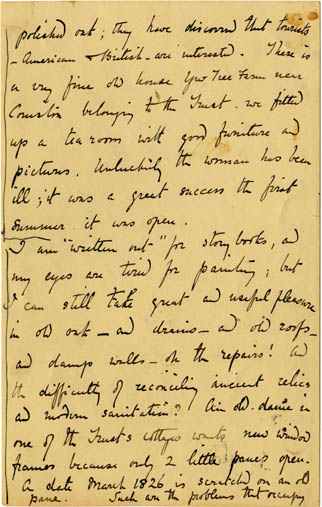 polished oak; they have discovered that tourists
- American & British - are interested. There is
a very fine old house Yew Tree Farm near
Coniston belonging to the Trust - we fitted
up a tea room with good furniture and
pictures. Unluckily the woman has been
ill; it was a great success the first
summer it was open.
I am "written out" for story books, and
my eyes are tired for painting; but
I can still take great and useful pleasure
in old oak - and drains - and old roofs -
and damp walls - oh the repairs! And
the difficulty of reconciling ancient relics
and modern sanitation? An old dame in
one of the Trust's cottages wants new window
frames because only 2 little panes open.
A date March 1826 is scratched on an old
pane. Such are the problems that occupy